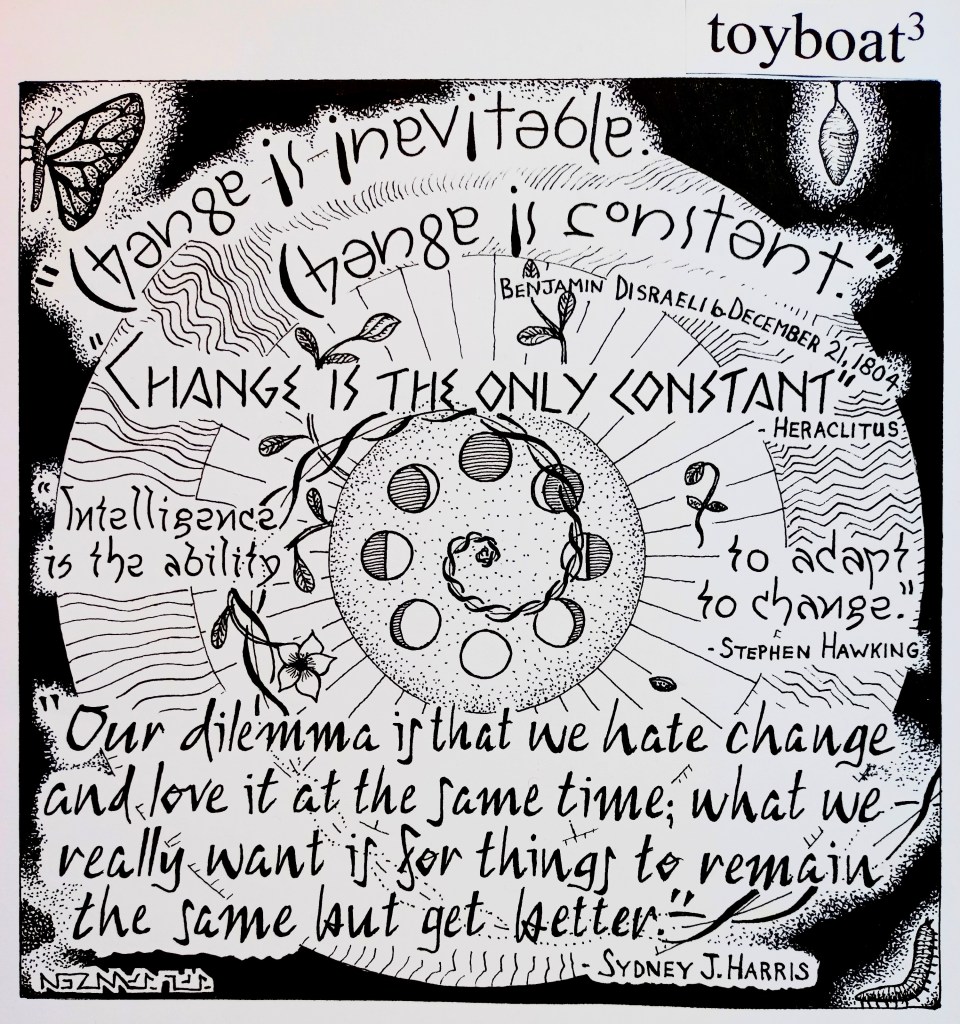 toyboat³
"Change is inevitable.
Change is constant."
BENJAMIN DISRAELI b. DECEMBER 21, 1804
"CHANGE IS THE ONLY CONSTANT"
- HERACLITUS
"Intelligence
is the ability
to adapt
to change."
- STEPHEN HAWKING
"Our dilemma is that we hate change
and love it at the same time; what we
really want is for things to remain
the same but get better."
- SYDNEY J. HARRIS